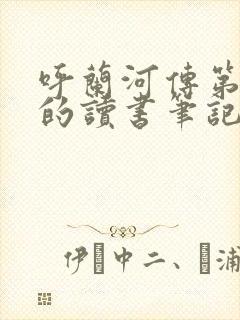 呼蘭河傳第
的讀書筆記
伊中二、浦